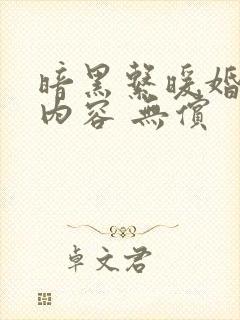 暗黑繫暖婚
內容 無償
卓文君